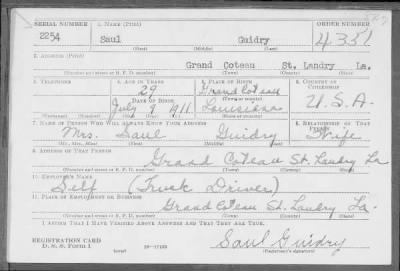 SERIAL NUMBER 1. NAME (Print) ORDER NUMBER
2254 Saul Guidry 4331
(First) (Middle) (Last)
2. ADDRESS (Print)
Grand Coteau St. Landry La.
(Number and street or R. F. D. number) (Town) (County) (State)
3. TELEPHONE 4. AGE IN YEARS 5. PLACE OF BIRTH 6. COUNTRY OF CITIZENSHIP
29 Grand Coteau
DATE OF BIRTH (Town or county)
July 9 1911 Louisiana U.S.A.
(Exchange) (Number) (Mo.) (Day) (Yr.) (State or country)
7. NAME OF PERSON WHO WILL ALWAYS KNOW YOUR ADDRESS 8. RELATIONSHIP OF THAT PERSON
Mrs. Saul Guidry Wife
(Mr., Mrs., Miss) (First) (Middle) (Last)
9. ADDRESS OF THAT PERSON
Grand Coteau St. Landry La
(Number and street or R. F. D. number) (Town) (County) (State)
10. EMPLOYER'S NAME
Self (Truck Driver)
11. PLACE OF EMPLOYMENT OR BUSINESS
Grand Coteau St. Landry La.
(Number and street or R. F. D. number) (Town) (County) (State)
I AFFIRM THAT I HAVE VERIFIED ABOVE ANSWERS AND THAT THEY ARE TRUE.
REGISTRATION CARD
D. S. S. Form 1 Saul Guidry
(over) (Registrant's signature)